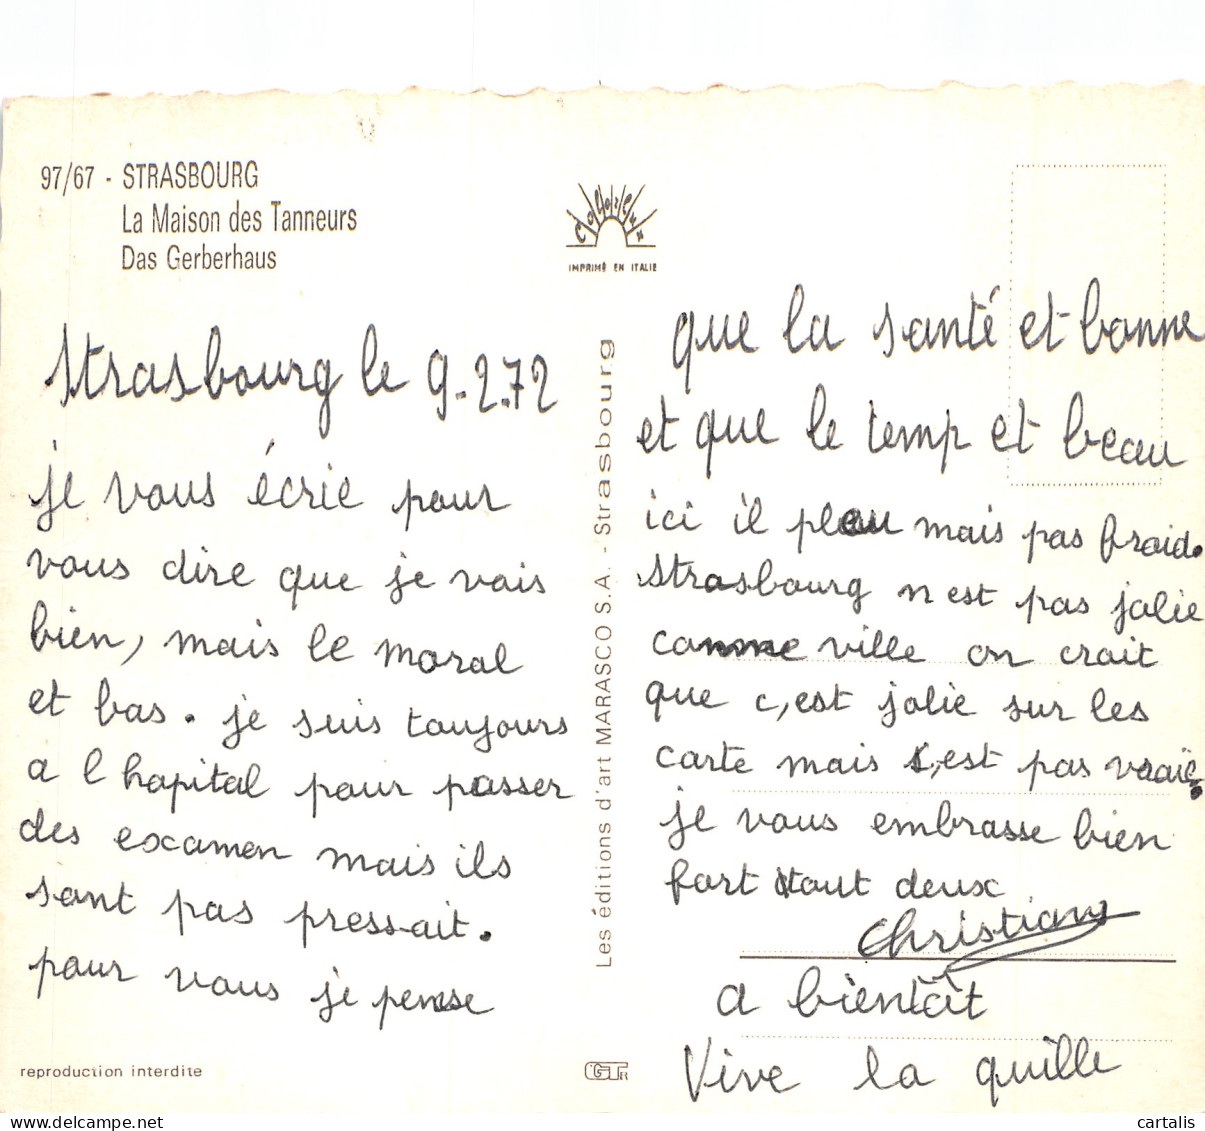 97/67 - STRASBOURG
La Maison des Tanneurs
Das Gerberhaus
Colorlux
IMPRIMÉ EN ITALIE
Strasbourg le 9.2.72
je vous écrie pour
vous dire que je vais
bien, mais le moral
et bas. je suis toujours
a l hopital pour passer
des examen mais ils
sont pas pressait.
pour vous je pense
reproduction interdite
Les éditions d'art MARASCO S.A. - Strasbourg
que la santé et bonne
et que le temp et beau
ici il pleu mais pas froid.
Strasbourg n est pas jolie
comme ville on croit
que c,est jolie sur les
carte mais s,est pas vraie.
je vous embrasse bien
fort tout deux
Christian
a bientôt
Vive la quille
cartalis